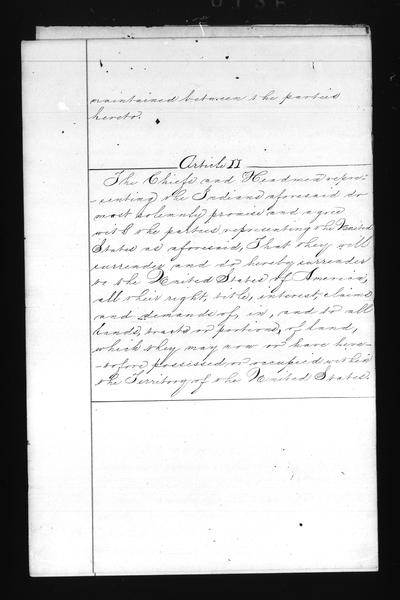 maintained between the parties
hereto.
Article II
The Chiefs and Headmen repre-
-senting the Indians aforesaid do
most solemnly promise and agree
with the parties representing the United
States as aforesaid, That they will
surrender and do hereby surrender
to the United States of America,
all their right, title, interest, claims
and demands of, in, and to all
lands, tracts or portions, of land,
which they may now or have here-
-tofore possessed or occupied within
the Territory of the United States.